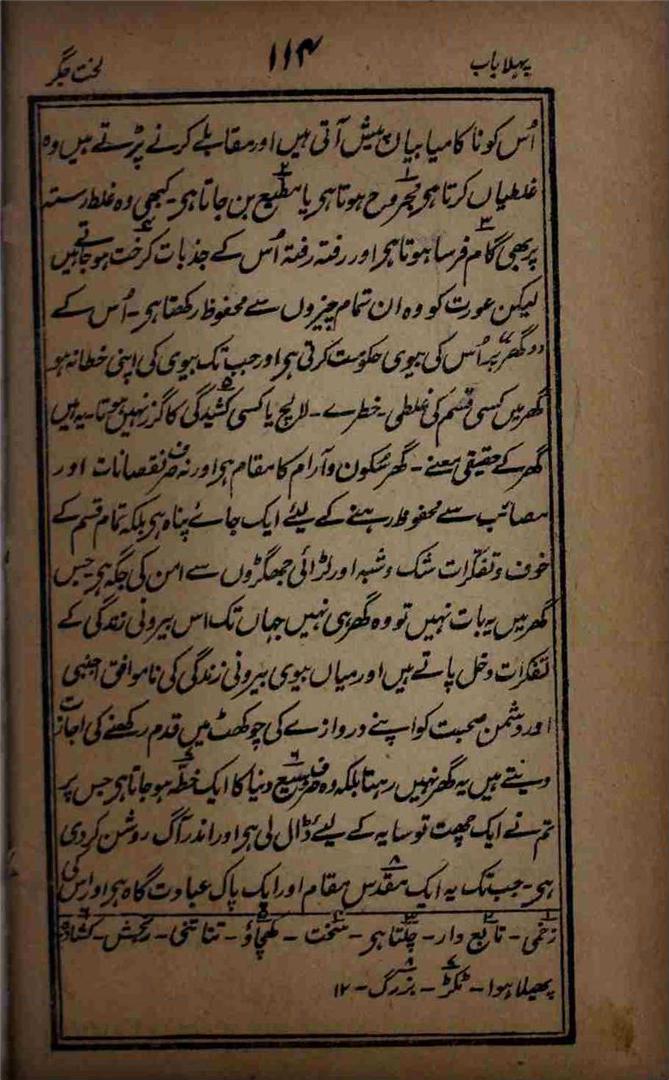 پہلا باب ۱۱۴ لخت جگر
اُس کو ناکامیابیاں پیش آتی ہیں اور مقابلے کرنے پڑتے ہیں وہ
غلطیاں کرتا ہی مجروح۱ ہوتا ہی یا مطیع۲ بن جاتا ہی۔ کبھی وہ غلط رستہ
پر بھی گام فرسا۳ ہوتا ہی اور رفتہ رفتہ اُس کے جذبات کرخت۴ ہو جاتے ہیں
لیکن عورت کو وہ ان تمام چیزوں سے محفوظ رکھتا ہی۔ اُس کے
گھر پر اُس کی بیوی حکومت کرتی ہی اور جب تک بیوی کی اپنی خطا نہ ہو
گھر میں کسی قسم کی غلطی۔ خطرے۔ لالچ یا کسی کشیدگی۵ کا گزر نہیں ہوتا۔ یہ ہیں
گھر کے حقیقی معنے۔ گھر سکون و آرام کا مقام ہی اور نہ صرف نقصانات اور
مصائب سے محفوظ رہنے کے لیئے ایک جائے پناہ ہی بلکہ تمام قسم کے
خوف و تفکرات شک و شبہ اور لڑائی جھگڑوں سے امن کی جگہ ہی۔ جس
گھر میں یہ بات نہیں تو وہ گھر ہی نہیں جہاں تک اس بیرونی زندگی کے
تفکرات دخل پاتے ہیں اور میاں بیوی بیرونی زندگی کی ناموافق اجنبی
اور دشمن صحبت کو اپنے دروازے کی چوکھٹ میں قدم رکھنے کی اجازت
دیتے ہیں یہ گھر نہیں رہتا بلکہ وہ صرف وسیع۶ دنیا کا ایک خطّہ۷ ہو جاتا ہی جس پر
تم نے ایک چھت تو سایہ کے لیئے ڈال لی ہی اور اندر آگ روشن کر دی
ہی۔ جب تک یہ ایک مقدس۸ مقام اور ایک پاک عبادت گاہ ہی اور اس کی
۱ زخمی۔ ۲ تابع دار۔ ۳ چلتا ہی۔ ۴ سخت۔ ۵ کھچاؤ۔ تنا تنی۔ رنجش۔ ۶ کشادہ
پھیلا ہوا۔ ۷ ٹکڑ۔ ۸ بزرگ۔ ۱۲